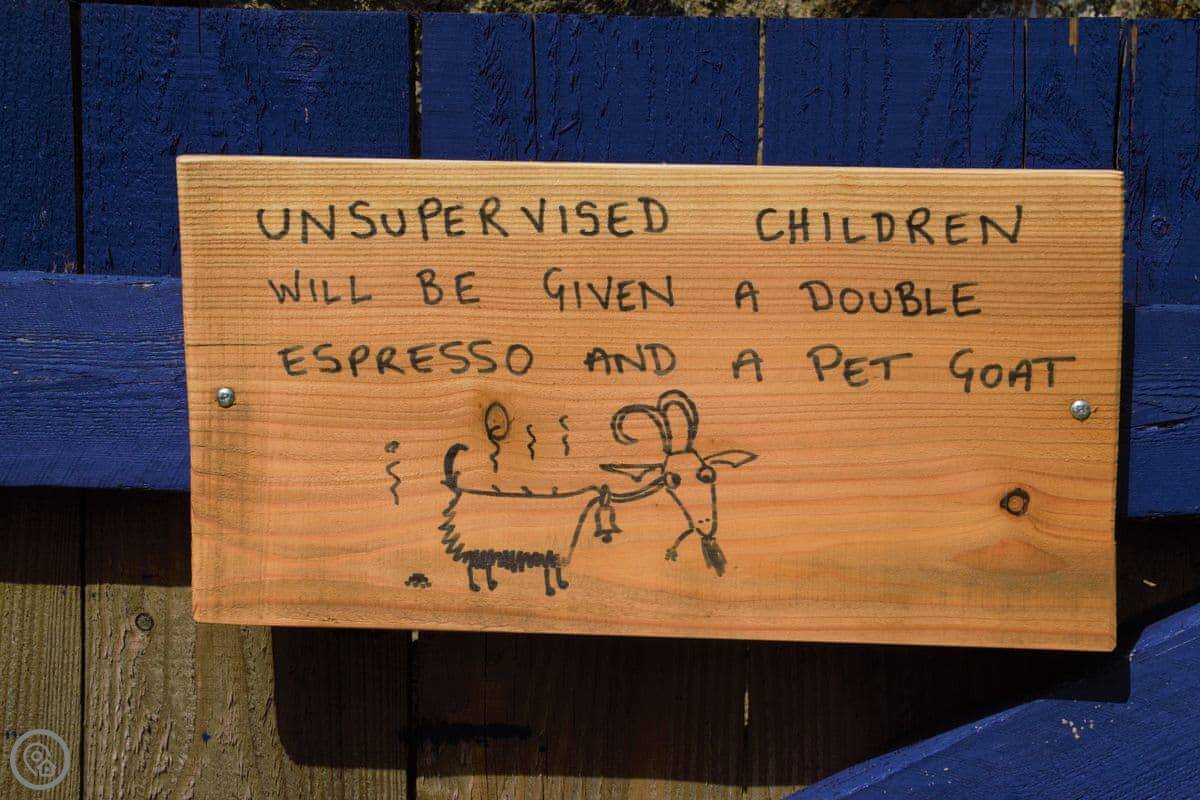 UNSUPERVISED CHILDREN
WILL BE GIVEN A DOUBLE
ESPRESSO AND A PET GOAT